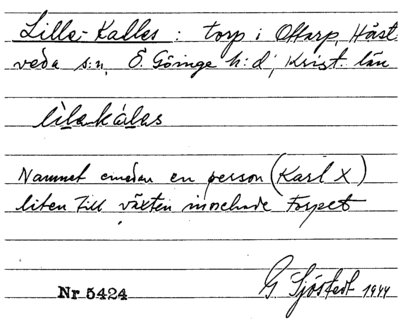 Lilla-Kalles: torp i Ottarp, Häst-
veda s:n, Ö. Göinge h:d, Krist. län
lìlakálas
Namnet emedan en person (Karl X)
liten till växten innehade torpet
Nr 5424
G. Sjöstedt 1944